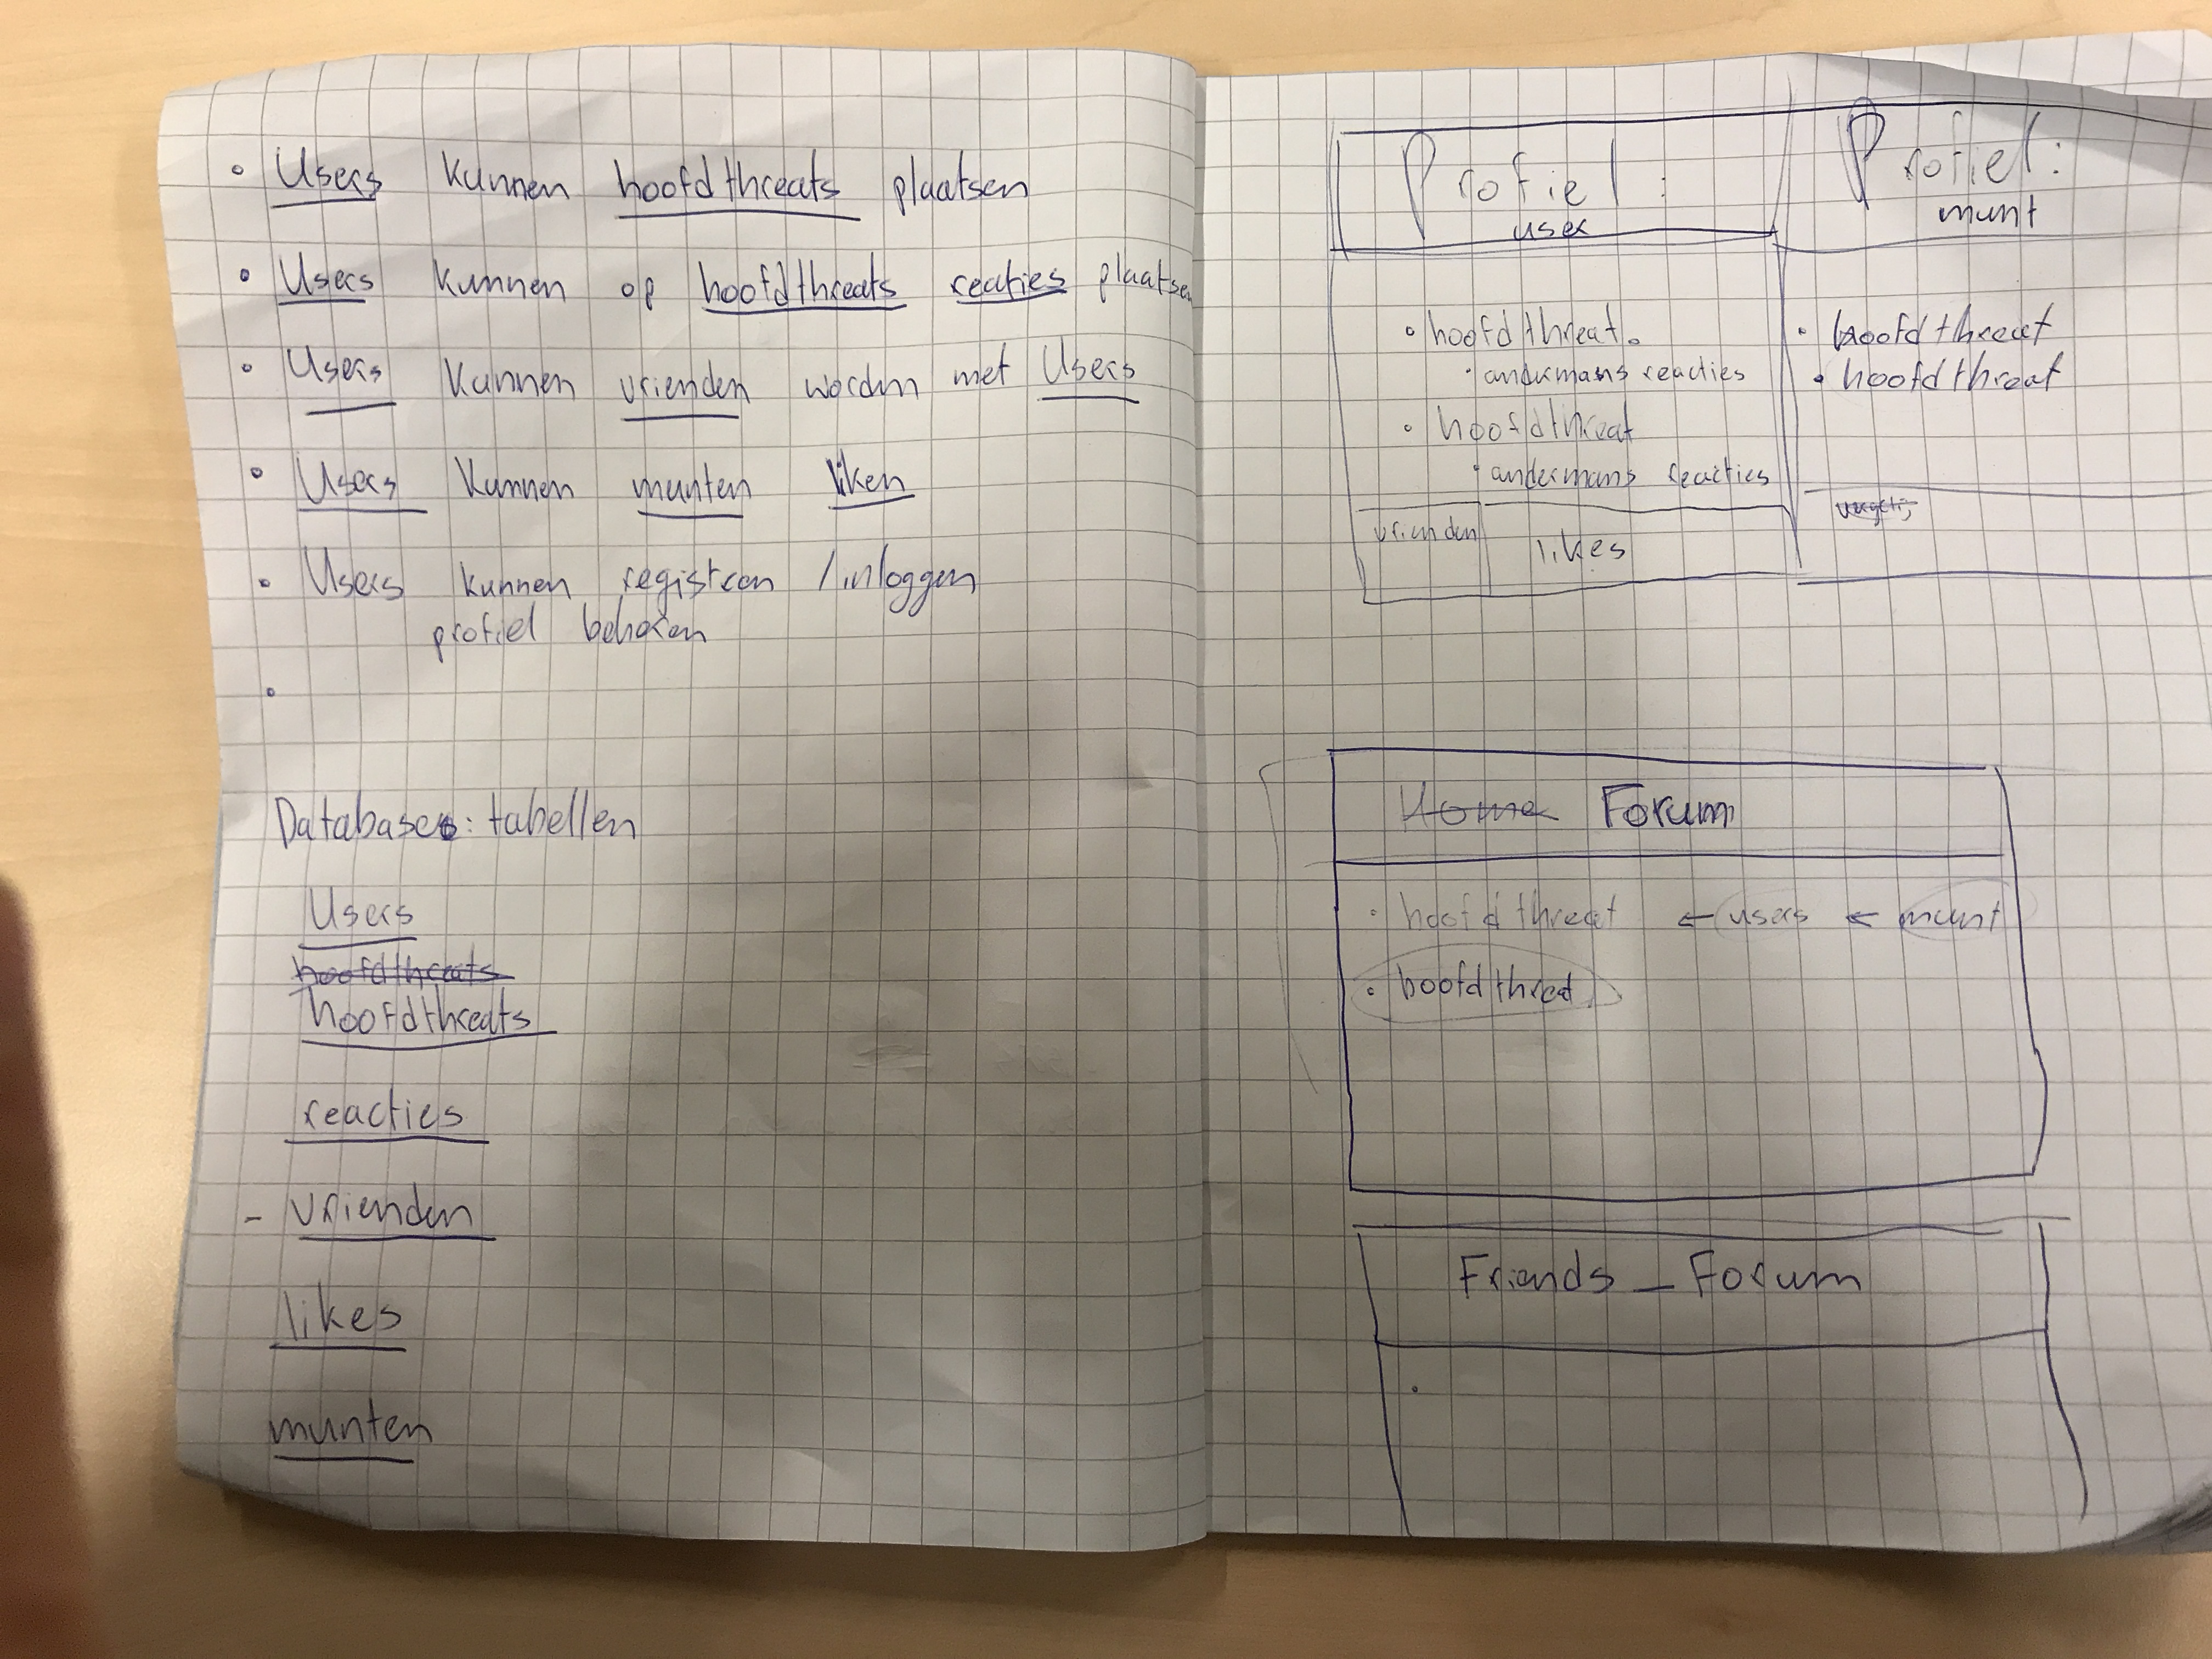 • Users kunnen hoofdthreats plaatsen
• Users kunnen op hoofdthreats reacties plaatsen
• Users kunnen vrienden worden met Users
• Users kunnen munten liken
• Users kunnen registeren / inloggen
profiel bekijken
•
Databases: tabellen
Users
hoofdthreats
hoofdthreats
reacties
- vrienden
likes
munten
Profiel:
user
• hoofdthreat
• andermans reacties
• hoofdthreat
• andermans reacties
vrienden
likes
Profiel:
munt
• hoofdthreat
• hoofdthreat
Home Forum
• hoofdthreat ← users ← munt
• hoofdthred
Friends - Forum